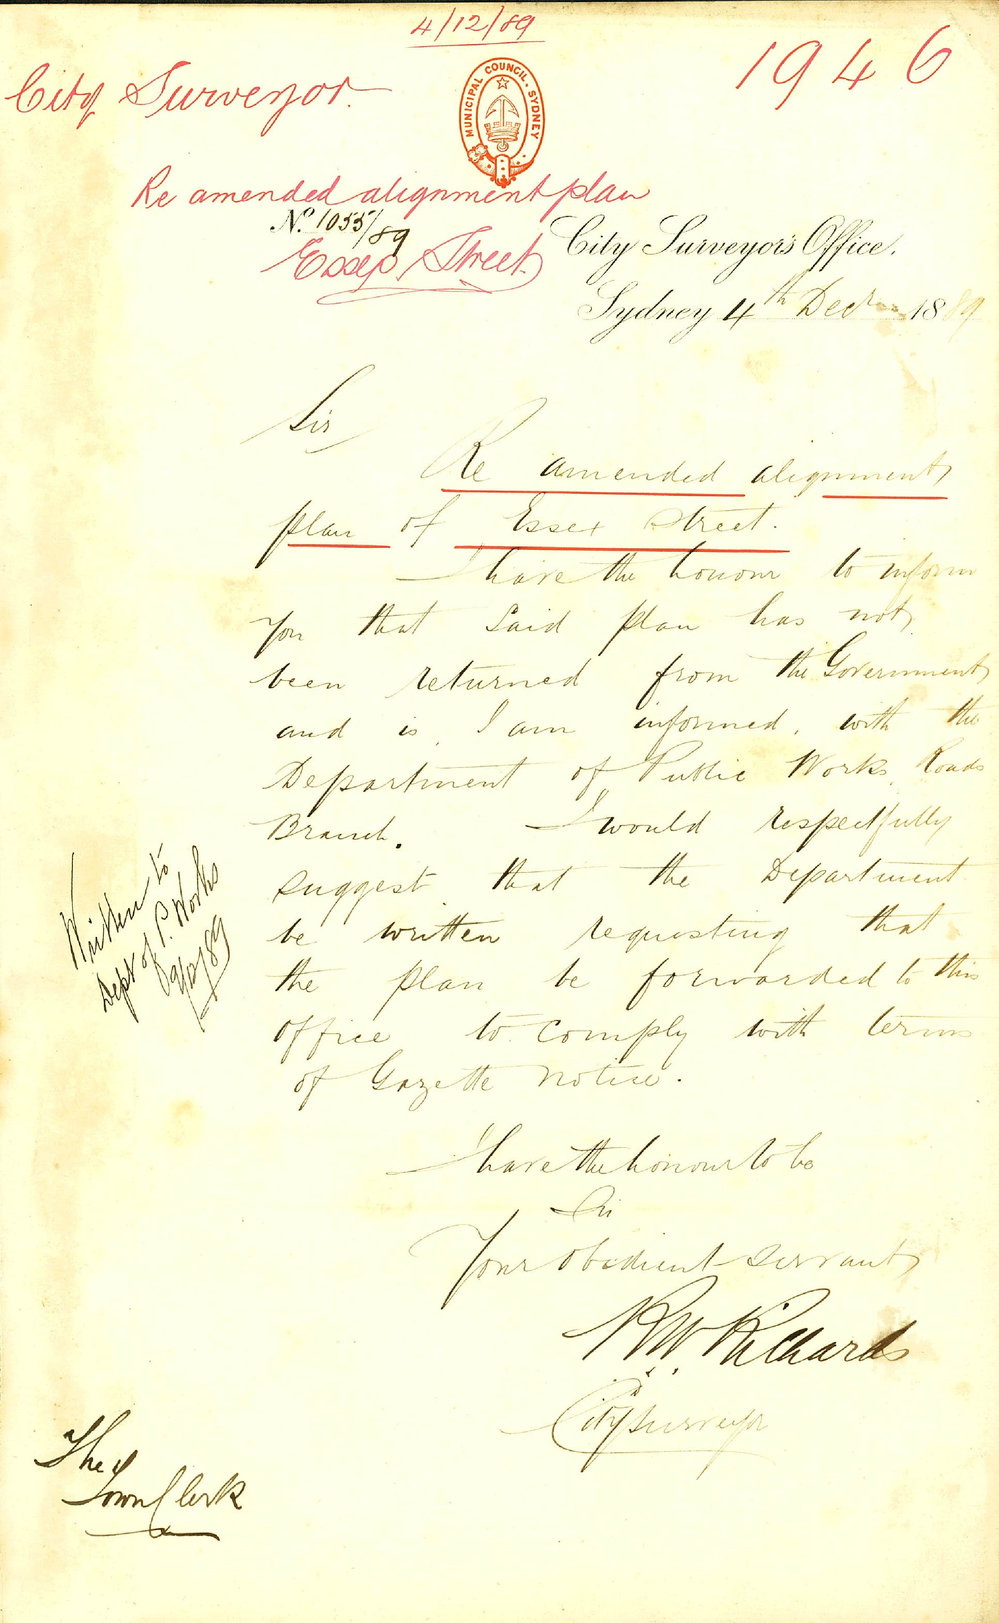 4/12/89
1946
City Surveyor.
MUNICIPAL COUNCIL. SYDNEY
Re amended alignment plan
No. 1055/89
Essex Street
City Surveyor's Office.
Sydney 4th Decr 1889
Sir
Re amended alignment
plan of Essex Street.
I have the honour to inform
you that said plan has not
been returned from the Government
and is, I am informed, with the
Department of Public Works, Roads
Branch. I would respectfully
suggest that the Department
be written requesting that
the plan be forwarded to this
office to comply with terms
of Gazette notice.
Written to
Dept of P. Works
9/12/89
I have the honour to be
Sir
Your obedient servant
R W Richards
City Surveyor
The
Town Clerk